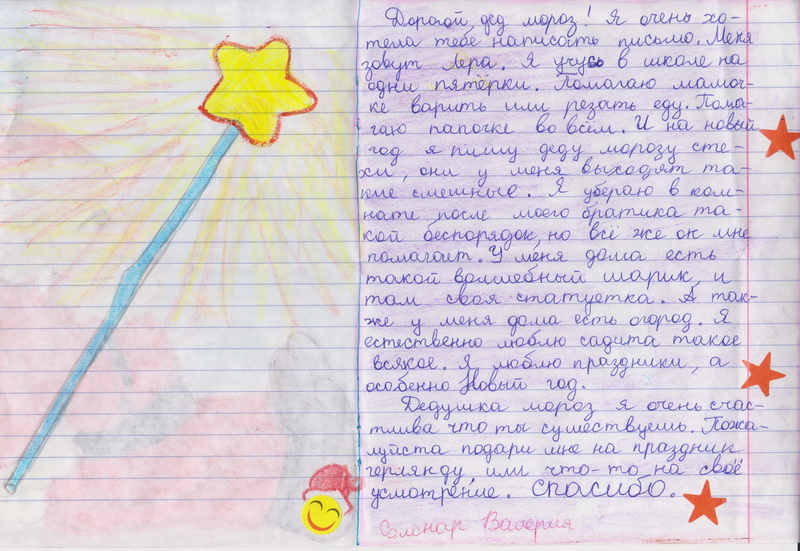 Дорогой, дед мороз! Я очень хо-
тела тебе написать письмо. Меня
зовут Лера. Я учусь в школе на
одни пятёрки. Помагаю мамоч-
ке варить или резать еду. Пома-
гаю папочке во всём. И на новый
год я пишу деду морозу сте-
хи, они у меня выходят та-
кие смешные. Я убераю в ком-
нате после моего братика та-
кой беспорядок, но всё же он мне
помагоит. У меня дома есть
такой волшебный шарик, и
там своя статуетка. А так-
же у меня дома есть огород. Я
естественно люблю садита такое
всякое. Я люблю праздники, а
особенно Новый год.
Дедушка мороз я очень счас-
тлива что ты существуешь. Пожа-
луйста подари мне на праздник
герлянду, или что-то на своё
усмотрение. спасибо.
Солонар Валерия